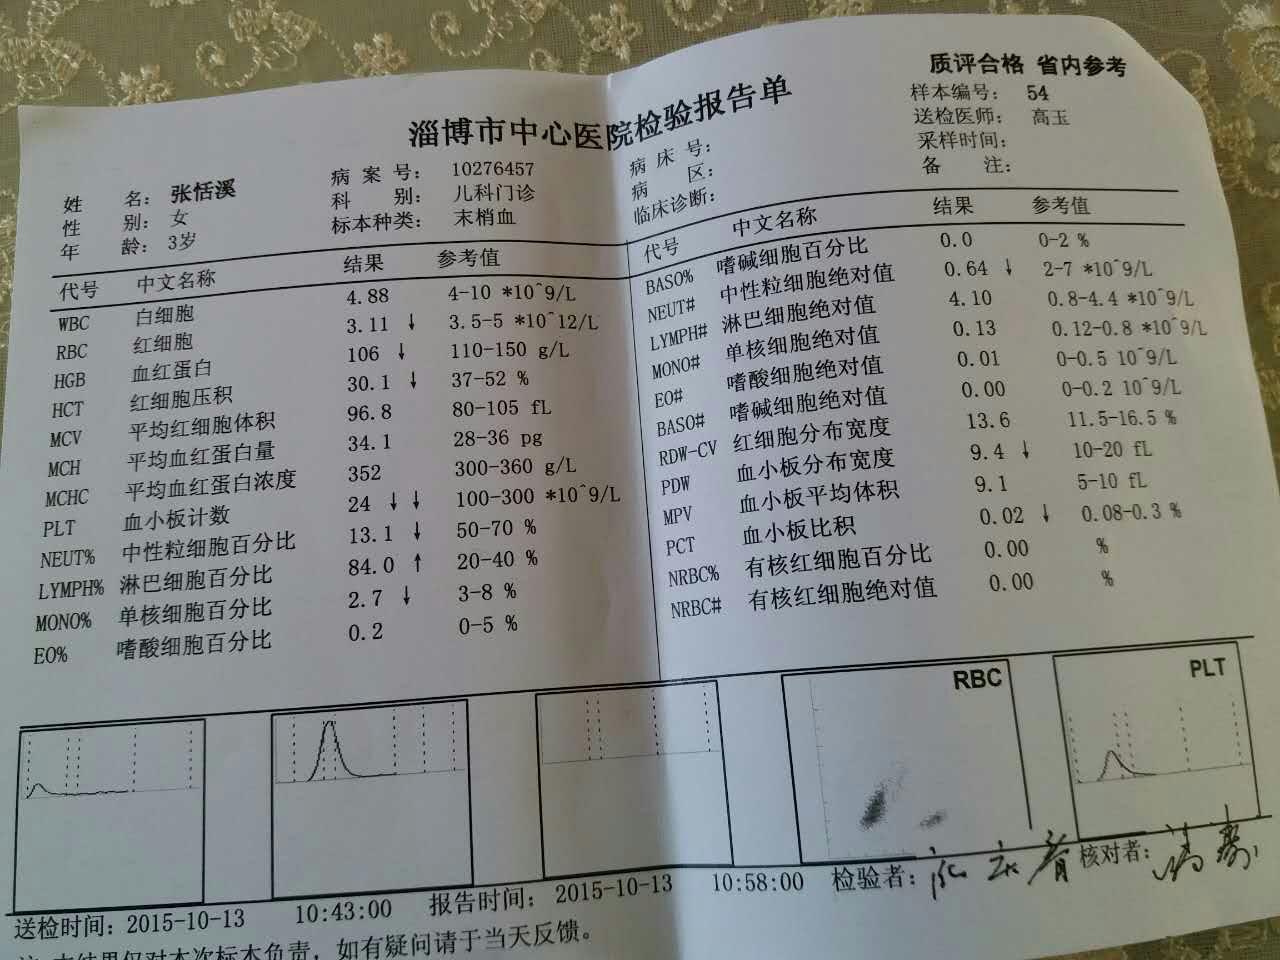 质评合格 省内参考
淄博市中心医院检验报告单
样本编号： 54
送检医师： 高玉
采样时间：
备 注：
姓 名： 张恬溪
性 别： 女
年 龄： 3岁
病 案 号： 10276457
科 别： 儿科门诊
标本种类： 末梢血
病 床 号：
病 区：
临床诊断：
代号 中文名称 结果 参考值
WBC 白细胞 4.88 4-10 *10^9/L
RBC 红细胞 3.11 ↓ 3.5-5 *10^12/L
HGB 血红蛋白 106 ↓ 110-150 g/L
HCT 红细胞压积 30.1 ↓ 37-52 %
MCV 平均红细胞体积 96.8 80-105 fL
MCH 平均血红蛋白量 34.1 28-36 pg
MCHC 平均血红蛋白浓度 352 300-360 g/L
PLT 血小板计数 24 ↓ ↓ 100-300 *10^9/L
NEUT% 中性粒细胞百分比 13.1 ↓ 50-70 %
LYMPH% 淋巴细胞百分比 84.0 ↑ 20-40 %
MONO% 单核细胞百分比 2.7 ↓ 3-8 %
EO% 嗜酸细胞百分比 0.2 0-5 %
代号 中文名称 结果 参考值
BASO% 嗜碱细胞百分比 0.0 0-2 %
NEUT# 中性粒细胞绝对值 0.64 ↓ 2-7 *10^9/L
LYMPH# 淋巴细胞绝对值 4.10 0.8-4.4 *10^9/L
MONO# 单核细胞绝对值 0.13 0.12-0.8 *10^9/L
EO# 嗜酸细胞绝对值 0.01 0-0.5 10^9/L
BASO# 嗜碱细胞绝对值 0.00 0-0.2 10^9/L
RDW-CV 红细胞分布宽度 13.6 11.5-16.5 %
PDW 血小板分布宽度 9.4 ↓ 10-20 fL
MPV 血小板平均体积 9.1 5-10 fL
PCT 血小板比积 0.02 ↓ 0.08-0.3 %
NRBC% 有核红细胞百分比 0.00 %
NRBC# 有核红细胞绝对值 0.00 %
RBC
PLT
送检时间： 2015-10-13 10:43:00 报告时间： 2015-10-13 10:58:00 检验者： 核对者：
本结果仅对本次标本负责，如有疑问请于当天反馈。